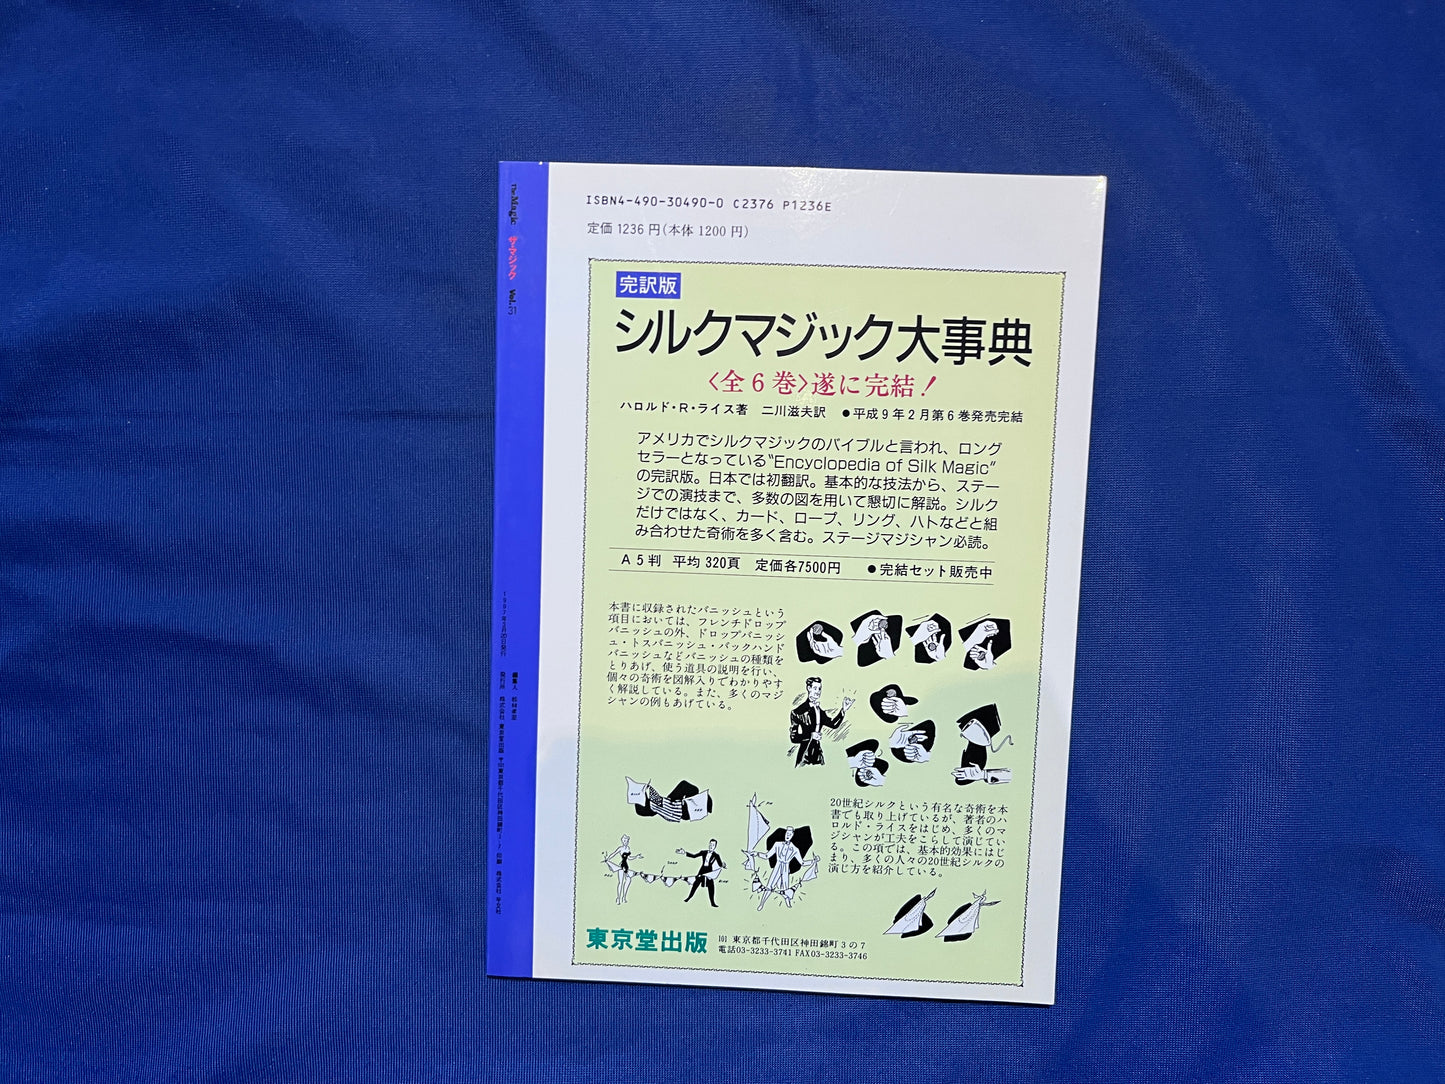 The Magic ザ・マジック Vol.31
ISBN4-490-30490-0 C2376 P1236E
定価 1236 円(本体 1200 円)
完訳版
シルクマジック大事典
〈全6巻〉遂に完結!
ハロルド・R・ライス著 二川滋夫訳 ●平成9年2月第6巻発売完結
アメリカでシルクマジックのバイブルと言われ、ロング
セラーとなっている“Encyclopedia of Silk Magic”
の完訳版。日本では初翻訳。基本的な技法から、ステー
ジでの演技まで、多数の図を用いて懇切に解説。シルク
だけではなく、カード、ロープ、リング、ハトなどと組
み合わせた奇術を多く含む。ステージマジシャン必読。
A5判 平均320頁 定価各7500円 ●完結セット販売中
本書に収録されたバニッシュという
項目においては、フレンチドロップ
バニッシュの外、ドロップバニッシ
ュ・トスバニッシュ・バックハンド
バニッシュなどバニッシュの種類を
とりあげ、使う道具の説明を行い、
個々の奇術を図解入りでわかりやす
く解説している。また、多くのマジ
シャンの例もあげている。
20世紀シルクという有名な奇術を本
書でも取り上げているが、著者のハ
ロルド・ライスをはじめ、多くのマ
ジシャンが工夫をこらして演じてい
る。この項では、基本的効果にはじ
まり、多くの人々の20世紀シルクの
演じ方を紹介している。
東京堂出版
101 東京都千代田区神田錦町3の7
電話03-3233-3741 FAX03-3233-3746
編集人
発行所 株式会社 東京堂出版 〒101東京都千代田区神田錦町3-7 印刷 株式会社